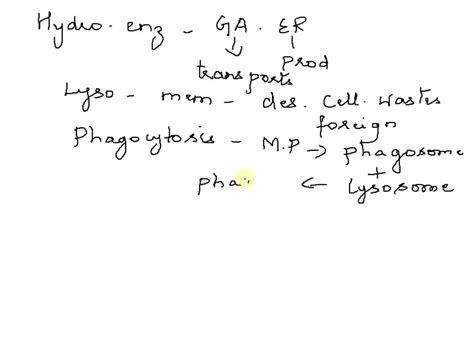 Hydro. enz - GA. ER
transports prod
Lyso - mem - des. Cell. wastes
foreign
Phagocytosis - M.P → phagosome
+
pha. ← Lysosome